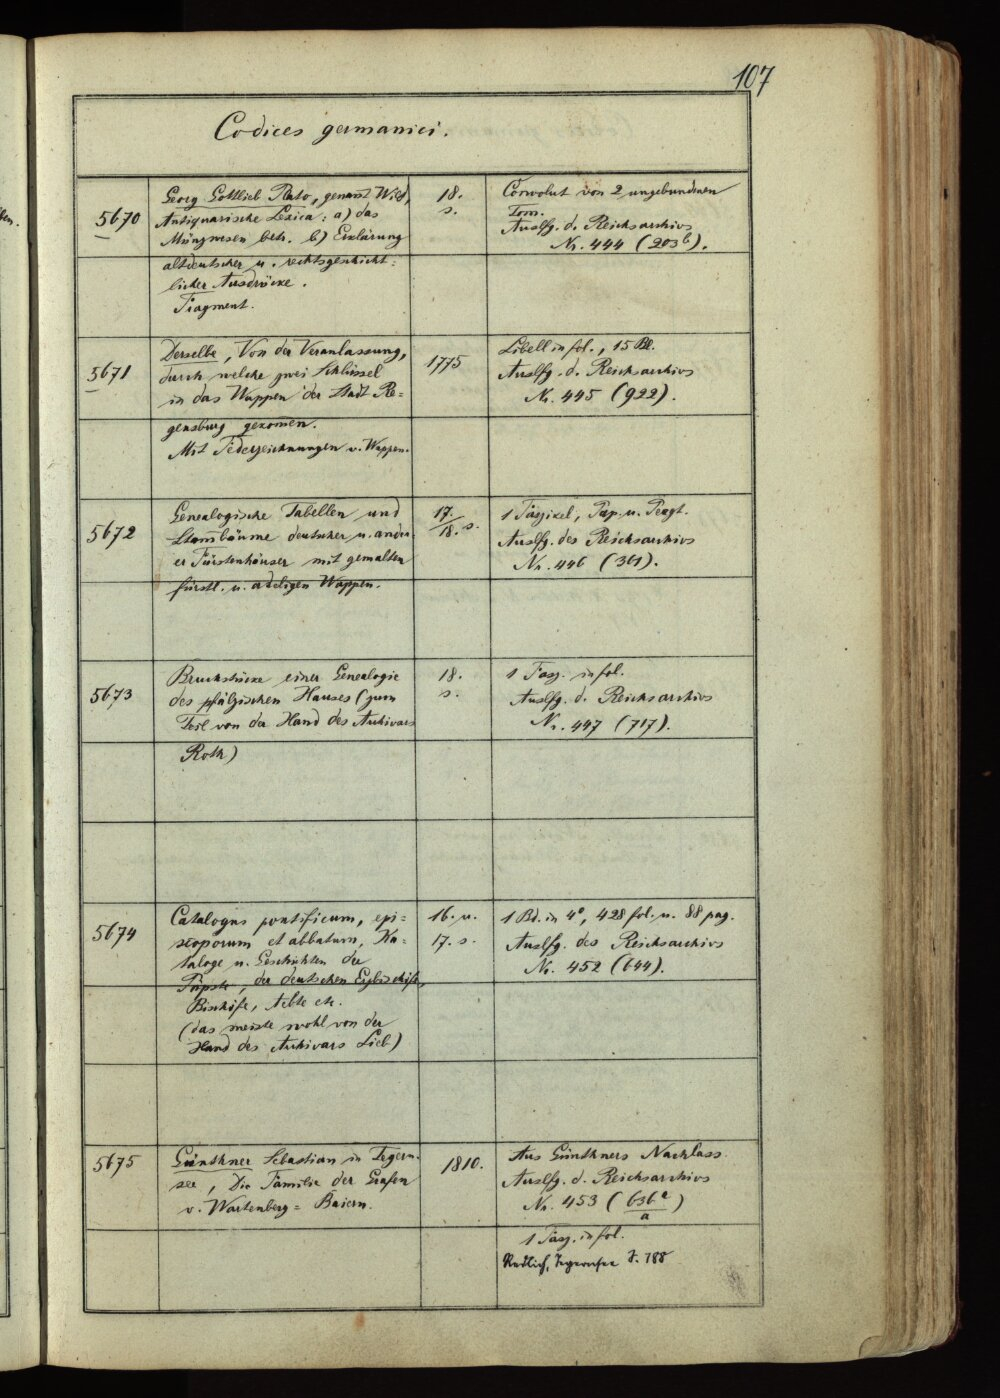 107
Codices germanici.
5670
Georg Gottlieb Plato, genannt Wild,
Antiquarische Lexica: a) das
Münzwesen betr. b) Erklärung
altdeutscher u. rechtsgeschicht-
licher Ausdrücke.
Fragment.
18.
s.
Convolut von 2 ungebundenen
Tom.
Auslfg. d. Reichsarchivs
Nr. 444 (203b).
5671
Derselbe, Von der Veranlassung,
durch welche zwei Schlüssel
in das Wappen der Stadt Re=
gensburg gekom̅en.
Mit Federzeichnungen v. Wappen.
1775
Libell in fol., 15 Bl.
Auslfg. d. Reichsarchivs
Nr. 445 (922).
5672
Genealogische Tabellen und
Stam̅bäume deutscher u. ander
er Fürstenhäuser mit gemalten
fürstl. u. adeligen Wappen.
17./18. s.
1 Faszikel, Pap. u. Pergt.
Auslfg. des Reichsarchivs
Nr. 446 (361).
5673
Bruchstücke einer Genealogie
des pfälzischen Hauses (zum
Teil von der Hand des Archivars
Roth)
18.
s.
1 Fasz. in fol.
Auslfg. d. Reichsarchivs
Nr. 447 (717).
5674
Catalogus pontificum, epi=
scoporum et abbatum, Ka=
taloge u. Geschichten der
Päpste, der deutschen Erzbischöfe,
Bischöfe, Aebte etc.
(das meiste wohl von der
Hand des Archivars Lieb)
16. u.
17. s.
1 Bd. in 4°, 428 fol. u. 88 pag.
Auslfg. des Reichsarchivs
Nr. 452 (644).
5675
Günthner Sebastian in Tegern-
see, Die Familie der Grafen
v. Wartenberg = Baiern.
1810.
Aus Günthners Nachlass.
Auslfg. d. Reichsarchivs
Nr. 453 (636e/a)
1 Fasz. in fol.
Redlich, Tegernsee S. 188